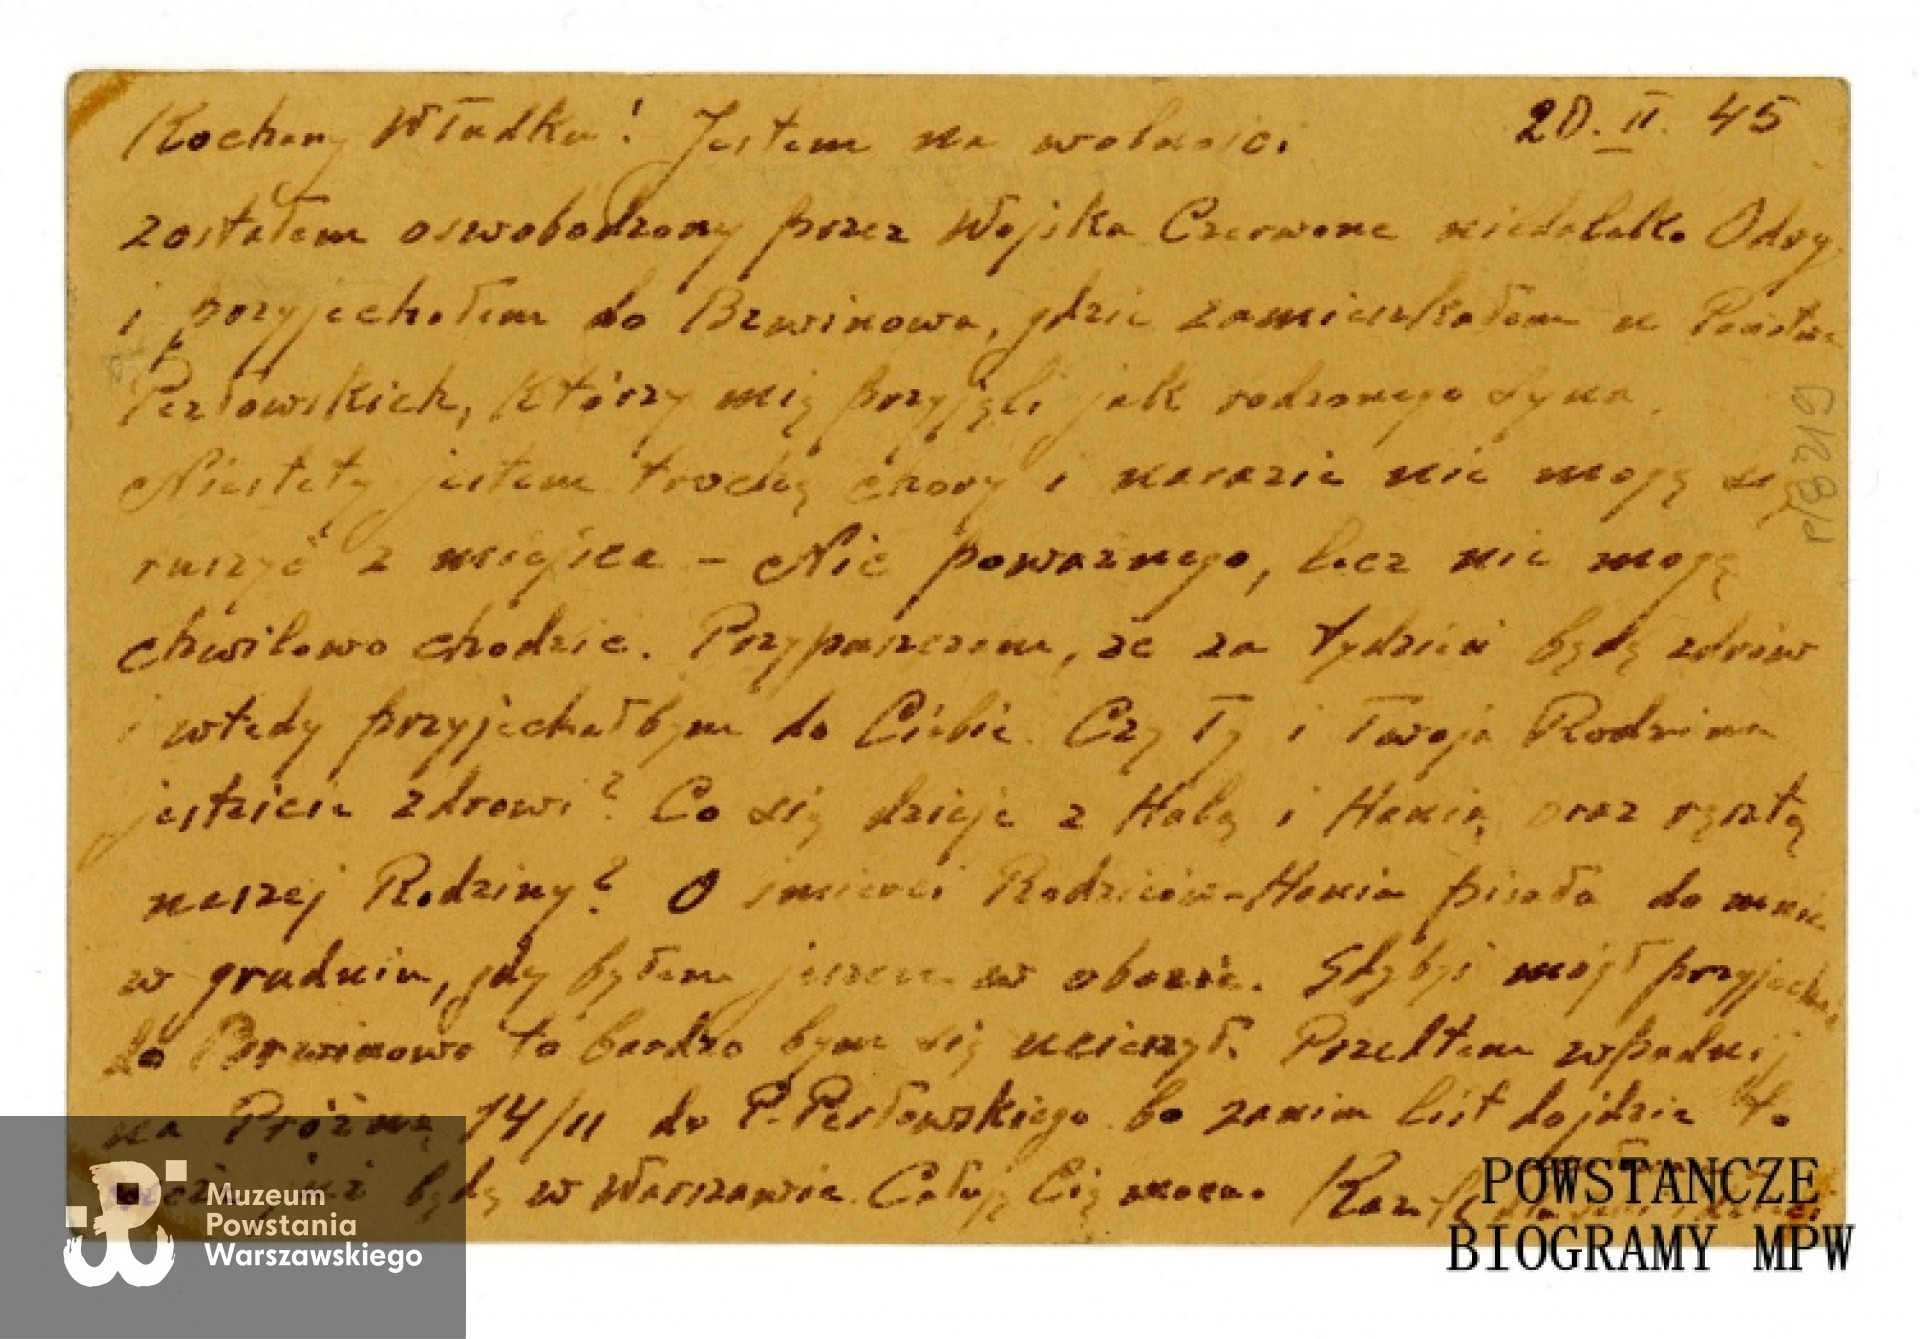 20. II. 45
Kochany Władku! Jestem na wolności.
zostałem oswobodzony przez Wojska Czerwone niedaleko Odry
i przyjechałem do Brwinowa, gdzie zamieszkałem u Państwa
Perłowskich, którzy mię przyjęli jak rodzonego syna.
Niestety jestem trochę chory i narazie nie mogę się
ruszyć z miejsca – Nic poważnego, lecz nie mogę
chwilowo chodzić. Przypuszczam, że za tydzień będę zdrów
i wtedy przyjechałbym do Ciebie. Czy Ty i Twoja Rodzina
jesteście zdrowi? Co się dzieje z Halą i Hanią oraz resztą
naszej Rodziny? O śmierci Rodziców - Hania pisała do mnie
w grudniu, gdy byłem jeszcze w obozie. Gdybyś mógł przyjechać
do Brwinowa to bardzo bym się ucieszył. Przedtem wpadnij
na Próżną 14/11 do P. Perłowskiego bo zanim list dojdzie to
już będę w Warszawie. Całuję Cię mocno.
r/8219
Muzeum
Powstania
Warszawskiego
POWSTANCZE
BIOGRAMY MPW